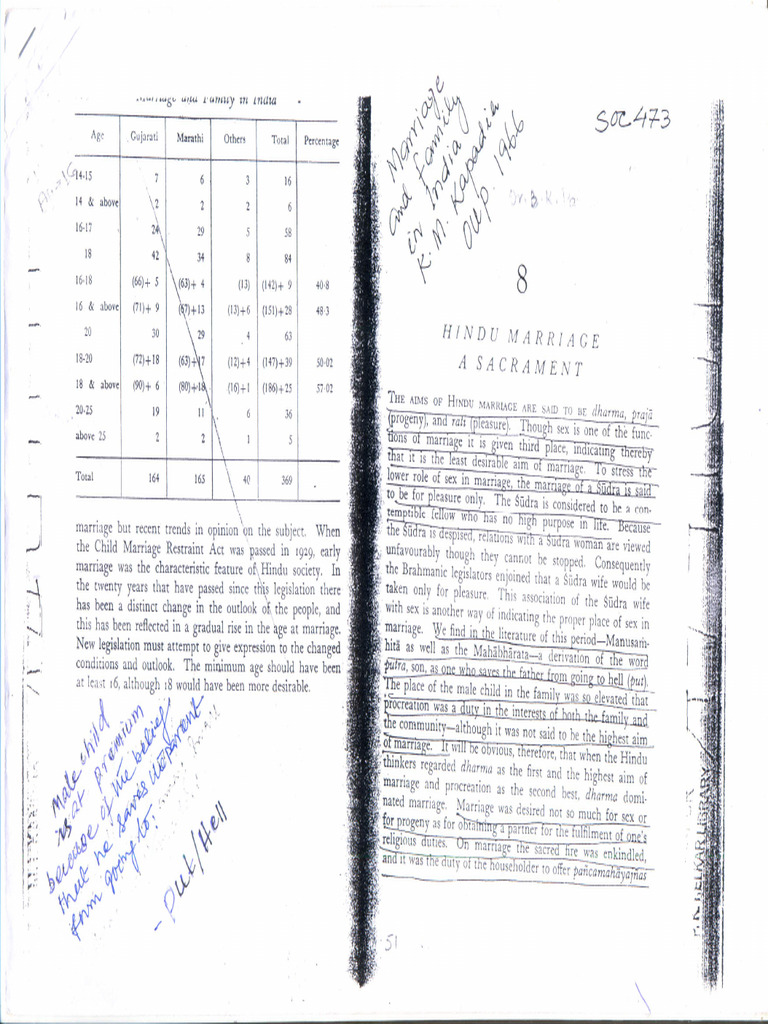 Marriage and Family in India
Age Gujarati Marathi Others Total Percentage
14-15 7 6 3 16
14 & above 2 2 2 6
16-17 24 29 5 58
18 42 34 8 84
16-18 (66)+ 5 (63)+ 4 (13) (142)+ 9 40·8
16 & above (71)+ 9 (67)+13 (13)+6 (151)+28 48·3
20 30 29 4 63
18-20 (72)+18 (63)+17 (12)+4 (147)+39 50·02
18 & above (90)+ 6 (80)+18 (16)+1 (186)+25 57·02
20-25 19 11 6 36
above 25 2 2 1 5
Total 164 165 40 369
marriage but recent trends in opinion on the subject. When
the Child Marriage Restraint Act was passed in 1929, early
marriage was the characteristic feature of Hindu society. In
the twenty years that have passed since this legislation there
has been a distinct change in the outlook of the people, and
this has been reflected in a gradual rise in the age at marriage.
New legislation must attempt to give expression to the changed
conditions and outlook. The minimum age should have been
at least 16, although 18 would have been more desirable.
Male child
is at premium
because of the belief
that he saves
from going to:
- Put/Hell
Marriage
and family
in India
K. M. Kapadia
OUP. 1966
SOC 473
8
HINDU MARRIAGE
A SACRAMENT
THE AIMS OF HINDU MARRIAGE ARE SAID TO BE dharma, prajā
(progeny), and rati (pleasure). Though sex is one of the func-
tions of marriage it is given third place, indicating thereby
that it is the least desirable aim of marriage. To stress the
lower role of sex in marriage, the marriage of a Śūdra is said
to be for pleasure only. The Śūdra is considered to be a con-
temptible fellow who has no high purpose in life. Because
the Śūdra is despised, relations with a Śūdra woman are viewed
unfavourably though they cannot be stopped. Consequently
the Brahmanic legislators enjoined that a Śūdra wife would be
taken only for pleasure. This association of the Śūdra wife
with sex is another way of indicating the proper place of sex in
marriage. We find in the literature of this period—Manusaṁ-
hitā as well as the Mahābhārata—a derivation of the word
putra, son, as one who saves the father from going to hell (put).
The place of the male child in the family was so elevated that
procreation was a duty in the interests of both the family and
the community—although it was not said to be the highest aim
of marriage. It will be obvious, therefore, that when the Hindu
thinkers regarded dharma as the first and the highest aim of
marriage and procreation as the second best, dharma domi-
nated marriage. Marriage was desired not so much for sex or
for progeny as for obtaining a partner for the fulfilment of one's
religious duties. On marriage the sacred fire was enkindled,
and it was the duty of the householder to offer pañcamahāyajñas
51